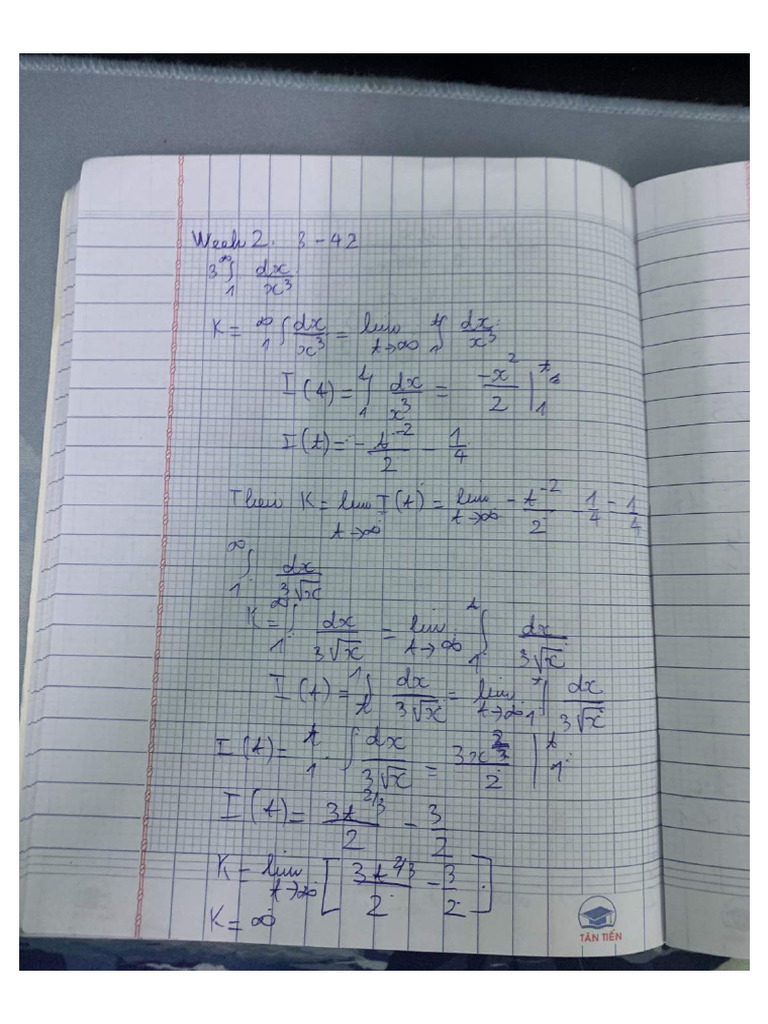 Week 2. 3-42
3 ∫₁^∞ dx/x³
K = ∫₁^∞ dx/x³ = lim t→∞ ∫₁^t dx/x³
I(t) = ∫₁^t dx/x³ = -x²/2 |₁^t
I(t) = -t⁻²/2 - 1/4
Then K = lim t→∞ I(t) = lim t→∞ -t⁻²/2 - 1/4 - 1/4
∫₁^∞ dx/3√x
K = ∫₁^∞ dx/3√x = lim t→∞ ∫₁^t dx/3√x
I(t) = ∫ₜ^1 dx/3√x = lim t→∞ ∫₁^t dx/3√x
I(t) = ₁^t . ∫ dx/3√x = 3x^(2/3)/2 |₁^t
I(t) = 3t^(2/3)/2 - 3/2
K = lim t→∞ [3t^(2/3)/2 - 3/2]
K = ∞
TÂN TIẾN